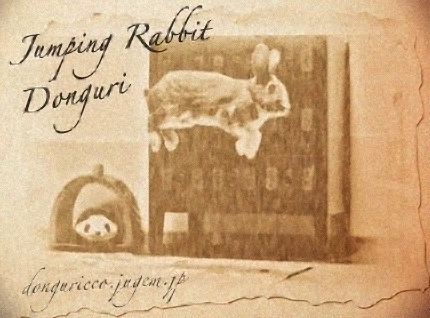 Jumping Rabbit
Donguri
donguricco.jugem.jp